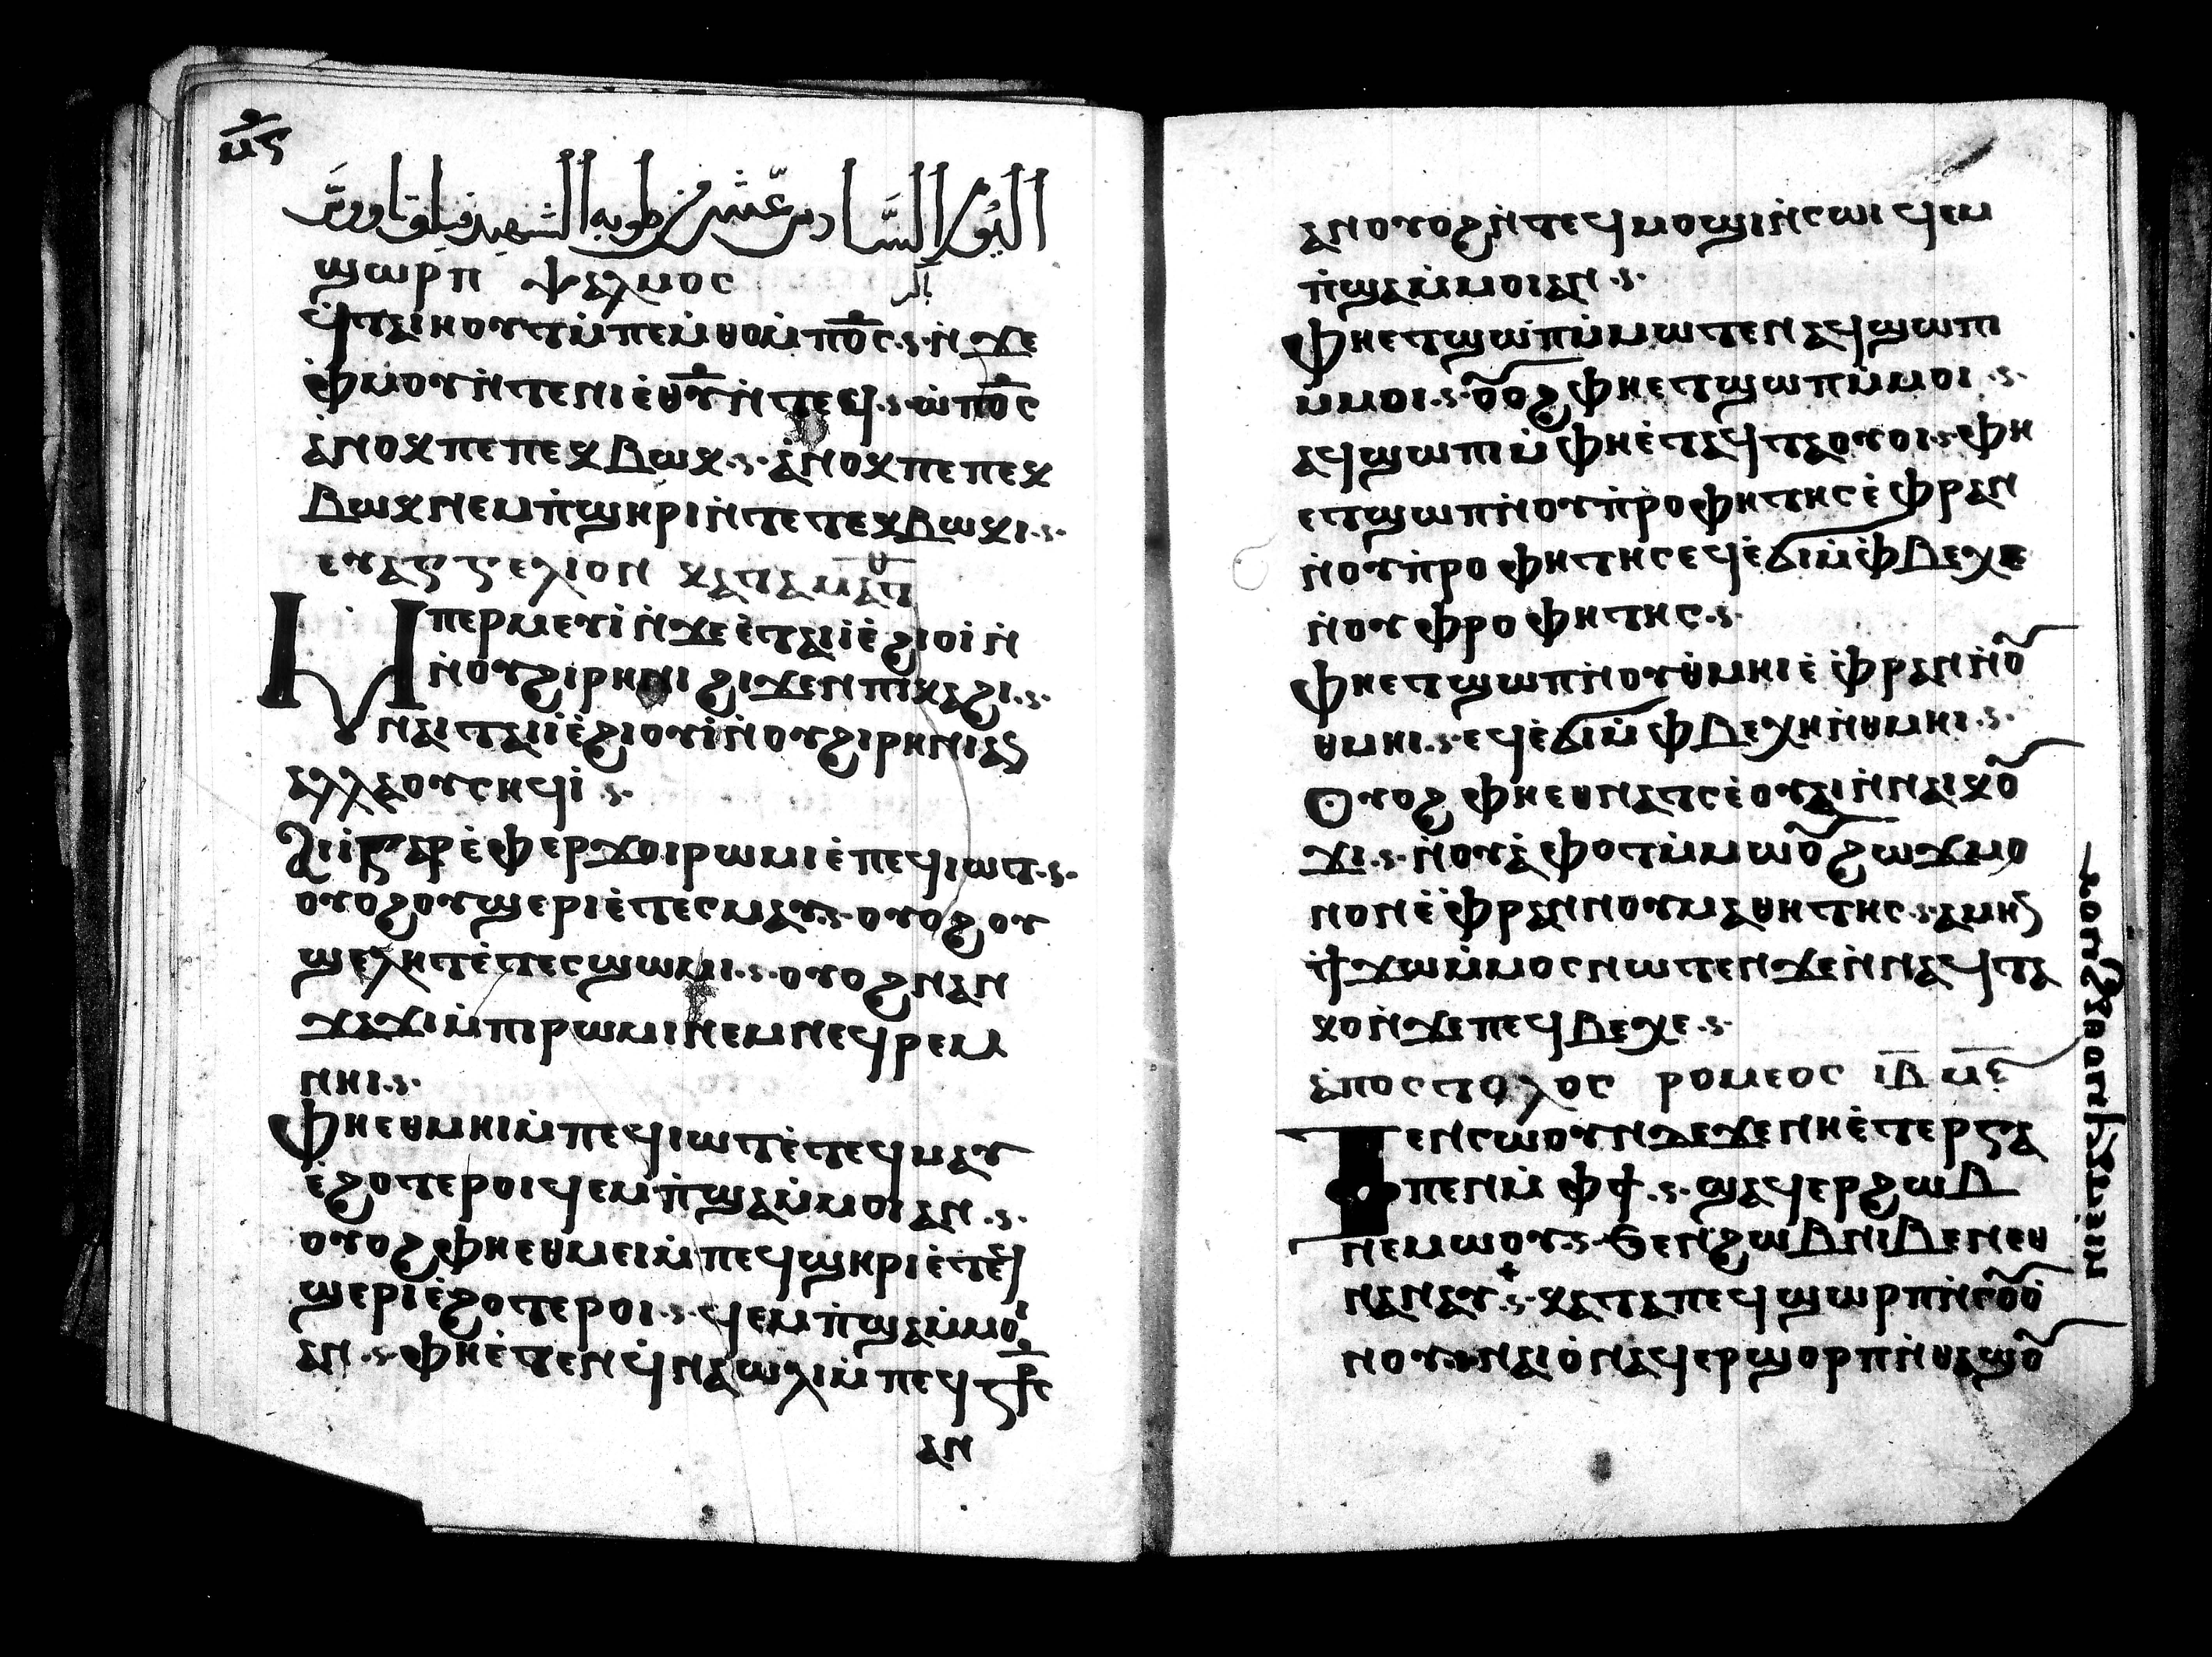 ⲙ̅ⲋ
اليوم السَّادس عشر من طوبه الشهيد فيلوتاوورس
ϣⲱⲣⲡ ⲯⲁⲗⲙⲟⲥ باكر
ϥⲧⲁⲓⲏⲟⲩⲧⲙ̀ⲡⲉⲙ̀ⲑⲟⲙ̀ⲡⲟ̅ⲥ ⲛ̀ϫⲉ
ⲫ̀ⲙⲟⲩⲛ̀ⲧⲉⲛⲓⲉ̀ⲑⲩ̅ⲛ̀ⲧⲉϥ ⲱ̀ⲡⲟ̅ⲥ
ⲁ̀ⲛⲟⲕⲡⲉⲡⲉⲕⲃⲱⲕ ⲁ̀ⲛⲟⲕⲡⲉⲡⲉⲕ
ⲃⲱⲕⲛⲉⲙⲡ̀ϣⲏⲣⲓⲛ̀ⲧⲉⲧⲉⲕⲃⲱⲕⲓ
ⲉⲩⲁⲅⲅⲉⲗⲓⲟⲛ ⲕⲁⲧⲁⲙⲁⲧ̅
Ⲙⲡⲉⲣⲙⲉⲩⲓ̀ⲛ̀ϫⲉⲉ̀ⲧⲁⲓⲓ̀ⲉ̀ϩⲓⲟⲓ̀ⲛ̀
ⲛ̀ⲟⲩϩⲓⲣⲏⲛⲓ ϩⲓϫⲉⲛⲡⲓⲕⲁϩⲓ
ⲛⲁⲓⲧⲁⲓⲓ̀ⲉ̀ϩⲓⲟⲩⲓ̀ⲛ̀ⲟⲩϩⲓⲣⲏⲛⲓⲁⲛ
ⲁⲗⲗⲁⲟⲩⲥⲏϥⲓ
ⲁⲓⲓ̀ⲅⲁⲣⲉ̀ⲫⲉⲣϫⲟⲓⲣⲱⲙⲓⲉ̀ⲡⲉϥⲓⲱⲧ
ⲟⲩⲟϩⲟⲩϣⲉⲣⲓⲉ̀ⲧⲉⲥⲙⲁⲩ ⲟⲩⲟϩⲟⲩ
ϣⲉⲗⲏⲧⲉ̀ⲧⲉⲥϣⲱⲙⲓ ⲟⲩⲟϩⲛⲁⲛ
ϫⲁϫⲓⲙ̀ⲡⲓⲣⲱⲙⲓⲛⲉⲙⲛⲉϥⲣⲉⲙ
ⲛⲏⲓ
ⲫⲏⲉⲑⲙⲏⲓⲙ̀ⲡⲉϥⲓⲱⲧⲉ̀ⲧⲉϥⲙⲁⲩ
ⲉ̀ϩⲟⲧⲉⲣⲟⲓϥⲉⲙⲡ̀ϣⲁⲙ̀ⲙⲟⲓⲁⲛ
ⲟⲩⲟϩⲫⲏⲉⲑⲙⲉⲓⲙ̀ⲡⲉϥϣⲏⲣⲓⲉ̀ⲧⲉϥ
ϣⲉⲣⲓⲉ̀ϩⲟⲧⲉⲣⲟⲓ ϥⲉⲙⲡ̀ϣⲁⲙ̀ⲙⲟⲓ
ⲁⲛ ⲫⲏⲉ̀ⲧⲉⲛϥ̀ⲛⲁⲱⲗⲓⲙ̀ⲡⲉϥⲥ̅ⲣⲥ
ⲁⲛ
ⲁⲛⲟⲩⲟϩⲛ̀ⲧⲉϥⲙⲟϣⲓⲛ̀ⲥⲱⲓ ϥⲉⲙ
ⲡ̀ϣⲁⲙ̀ⲙⲟⲓⲁⲛ
ⲫⲏⲉⲧϣⲱⲡⲙ̀ⲙⲱⲧⲉⲛⲁϥϣⲱⲡⲓ
ⲙ̀ⲙⲟⲓ ⲟⲩⲟϩⲫⲏⲉⲧϣⲱⲡⲙ̀ⲙⲟⲓ
ⲁϥϣⲱⲡⲓⲙ̀ⲫⲏⲉ̀ⲧⲁϥⲧⲁⲟⲩⲟⲓ ⲫⲏ
ⲉⲧϣⲱⲡⲛ̀ⲟⲩⲡ̀ⲣⲟⲫⲏⲧⲏⲥⲉ̀ⲫⲣⲁⲛ
ⲛ̀ⲟⲩⲡ̀ⲣⲟⲫⲏⲧⲏⲥⲉϥⲉ̀ϭⲓⲙ̀ⲫ̀ⲃⲉⲭⲉ
ⲛ̀ⲟⲩⲫⲣⲟⲫⲏⲧⲏⲥ
ⲫⲏⲉⲧϣⲱⲡⲛ̀ⲟⲩⲑ̀ⲙⲏⲓⲉ̀ⲫ̀ⲣⲁⲛⲛ̀ⲟⲩ
ⲑⲙⲏⲓ ⲉϥⲉ̀ϭⲓⲙ̀ⲫⲃⲉⲭⲏⲛ̀ⲑⲙⲏⲓ
ⲟⲩⲟϩ ⲫⲏⲉⲑⲛⲁⲧⲥⲉ̀ⲟⲩⲁⲓⲛ̀ⲛⲁⲓⲕⲟⲩ
ϫⲓ ⲛ̀ⲟⲩⲁ̀ⲫⲟⲧⲙ̀ⲙⲱⲟⲩϩⲱϫⲙⲟ
ⲛⲟⲛⲉ̀ⲫ̀ⲣⲁⲛⲛⲟⲩⲙⲁⲑⲏⲧⲏⲥ ⲁⲙⲏⲛ
ϯϫⲱⲙ̀ⲙⲟⲥⲛⲱⲧⲉⲛϫⲉⲛ̀ⲛⲁϥⲧⲁ
ⲕⲟⲛ̀ϫⲉⲡⲉϥⲃⲉⲭⲉ
ⲁ̀ⲡⲟⲥⲧⲟⲗⲟⲥ ⲣⲟⲙⲉⲟⲥ ⲓ̅ⲃ̅ ⲙ̅ⲉ̅
Ⲧⲉⲛⲥⲱⲟⲩⲛⲇⲉϫⲉⲛⲏⲉ̀ⲧⲉⲣⲁⲅⲁ
ⲡⲉⲛⲙ̀ⲫϯ ϣⲁϥⲉⲣϩⲱⲃ
ⲛⲉⲙⲱⲟⲩ ϧⲉⲛϩⲱⲃⲛⲓⲃⲉⲛⲉⲑ
ⲛⲁⲛⲁⲩ ⲕⲁⲧⲁⲡⲉϥϣⲱⲣⲡⲛ̀ⲥⲟⲟⲩ
ⲛⲟⲩ ⲛⲁⲓⲟ̀ⲛⲁϥⲉⲣϣⲟⲣⲡⲛ̀ⲑⲁϣⲟⲩ